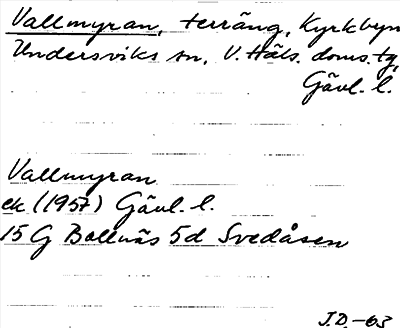 Vallmyran, terräng, Kyrkbyn
Undersviks sn, V. Häls. doms. tg,
Gävl. l.
Vallmyran
ek (1957) Gävl. l.
15 G Bollnäs 5d Svedåsen
J.D.-63